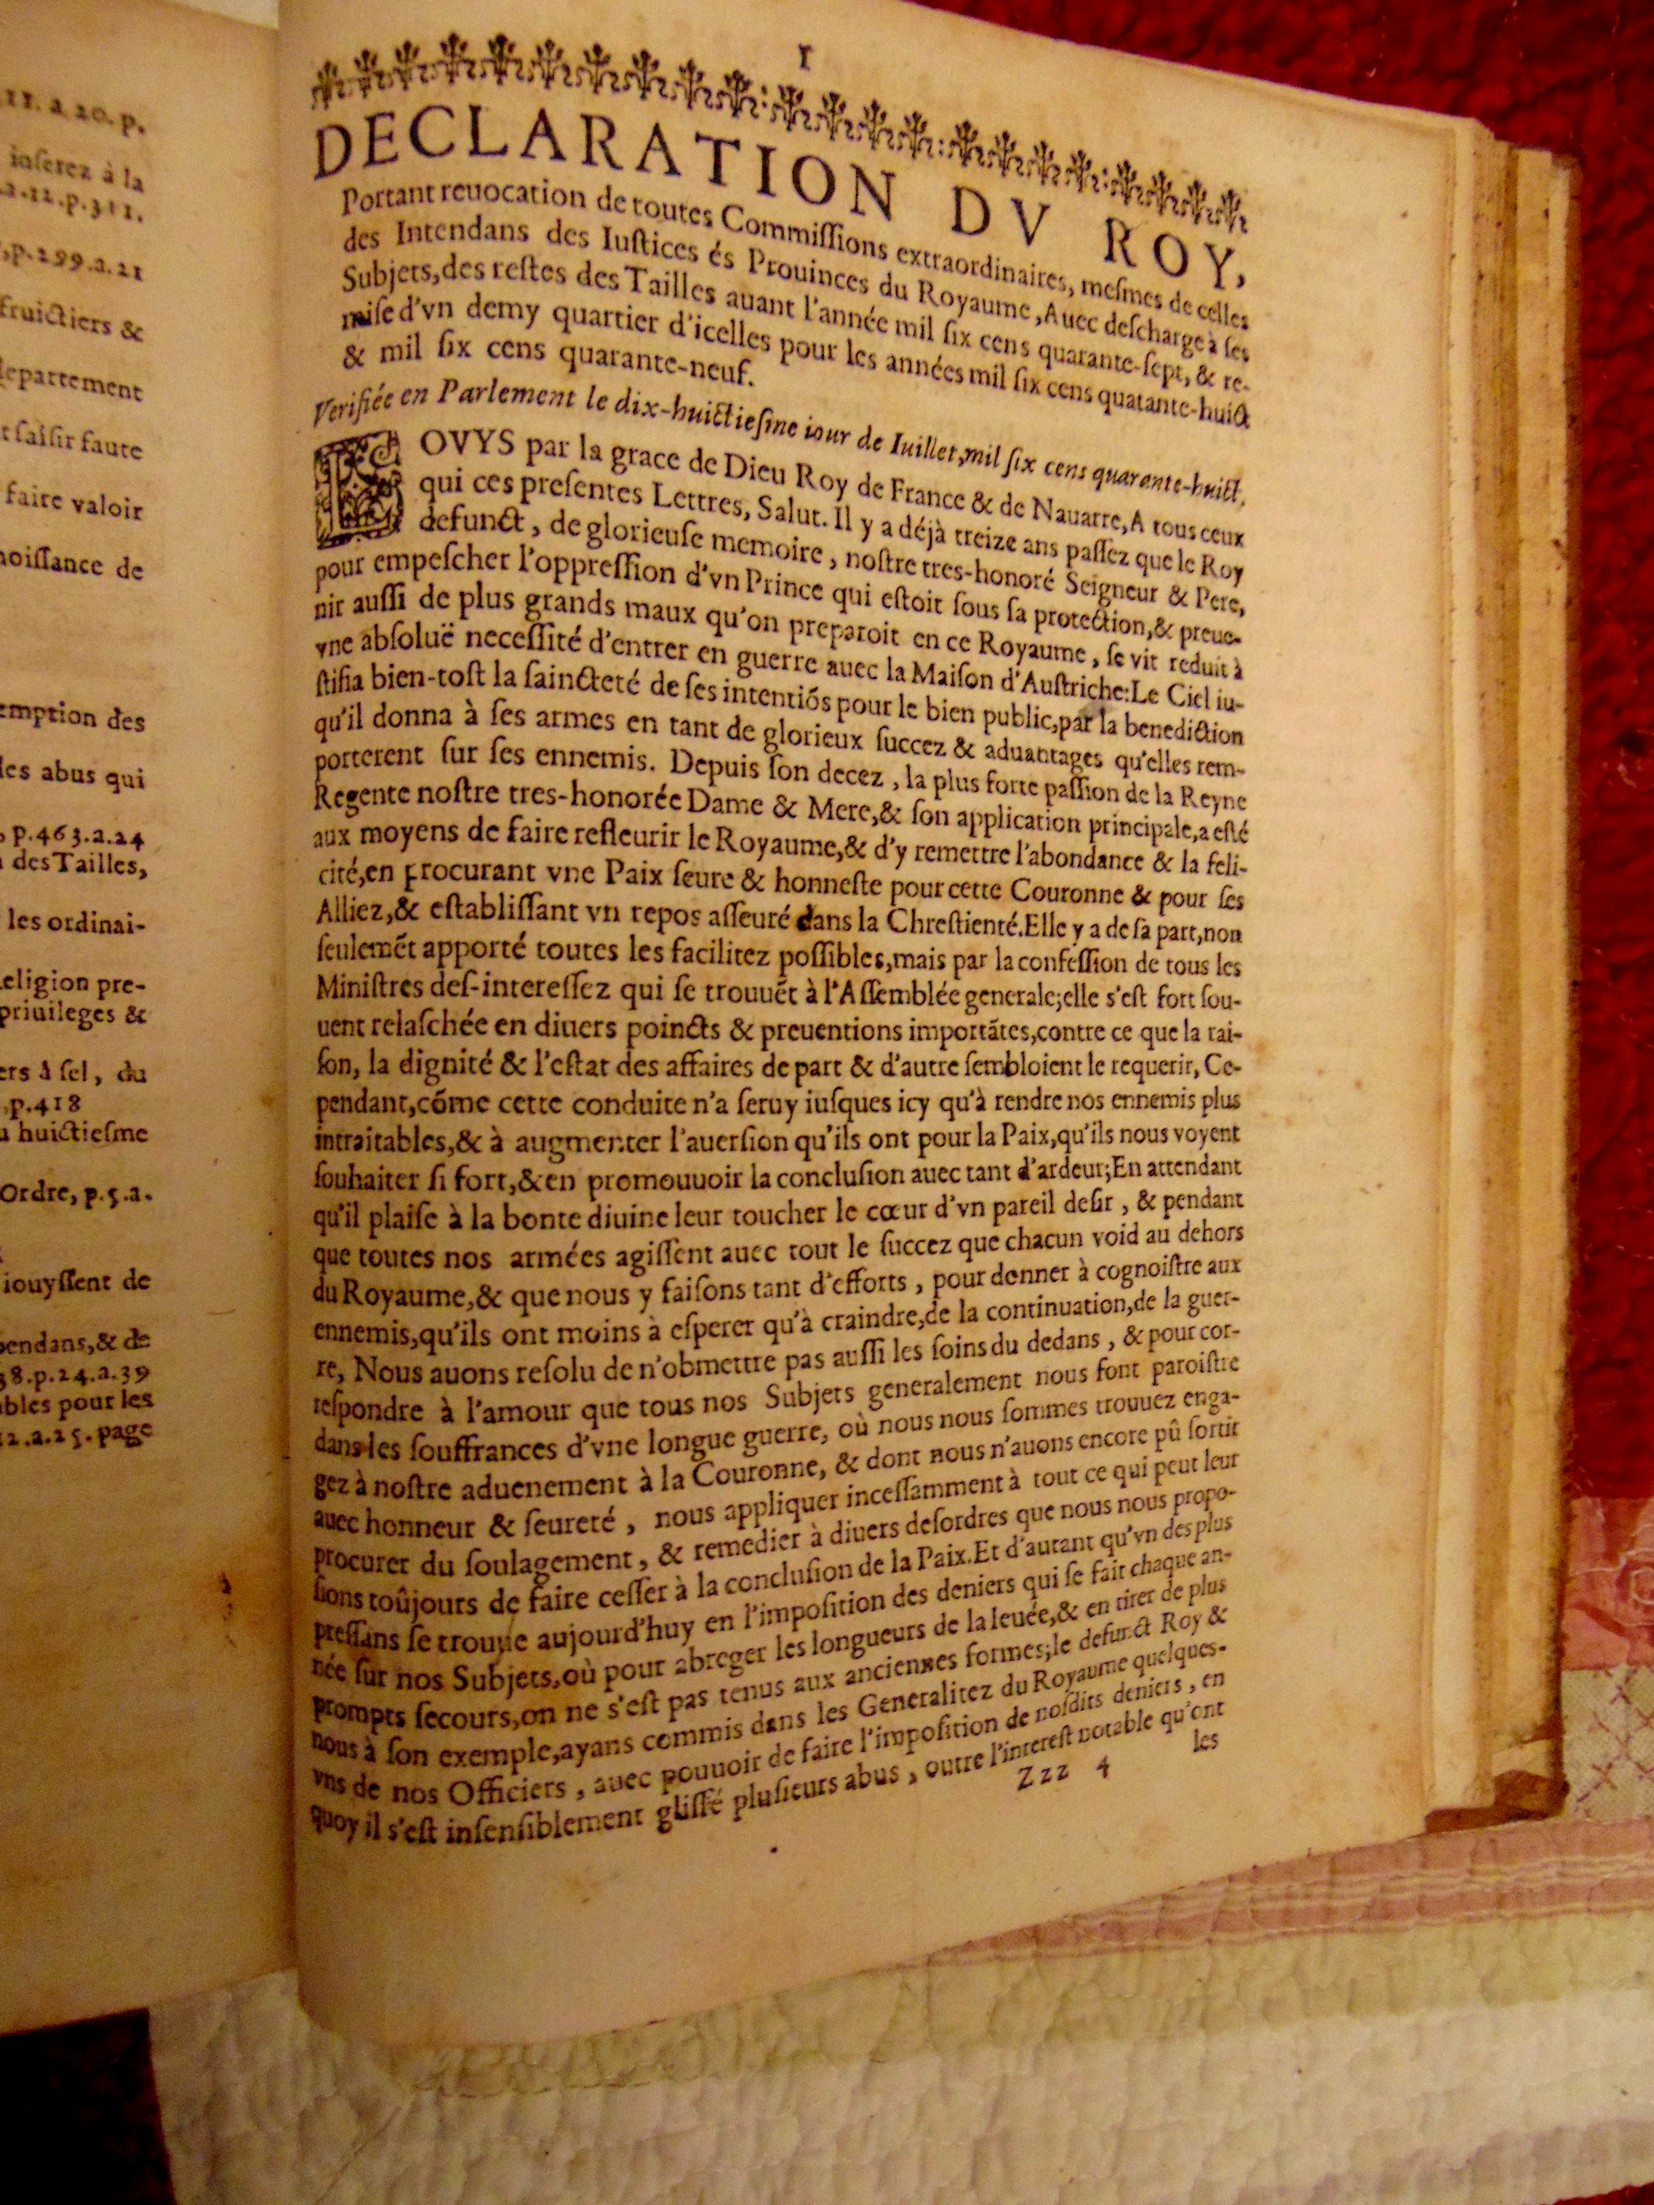 11. a 20. p.
inserez à la
.a.12.p.311.
,p.299.a.21
fruictiers &
departement
t saisir faute
faire valoir
noissance de
emption des
les abus qui
, p.463.a.24
des Tailles,
les ordinai-
eligion pre-
priuileges &
ers à sel, du
.p.418
huictiesme
Ordre, p.5.a.
iouyssent de
pendans,& de
38.p.24.a.39
ables pour les
12.a.25.page
1
DECLARATION DV ROY,
Portant reuocation de toutes Commissions extraordinaires, mesmes de celles
des Intendans des Iustices és Prouinces du Royaume, Auec descharge à ses
Subjets,des restes des Tailles auant l'année mil six cens quarante-sept, & re-
mise d'vn demy quartier d'icelles pour les années mil six cens quatante-huict
& mil six cens quarante-neuf.
Verifiée en Parlement le dix-huictiesme iour de Iuillet,mil six cens quarante-huict.
LOVYS par la grace de Dieu Roy de France & de Nauarre, A tous ceux
qui ces presentes Lettres, Salut. Il y a déjà treize ans passez que le Roy
defunct, de glorieuse memoire, nostre tres-honoré Seigneur & Pere,
pour empescher l'oppression d'vn Prince qui estoit sous sa protection,& preue-
nir aussi de plus grands maux qu'on preparoit en ce Royaume, se vit reduit à
vne absoluë necessité d'entrer en guerre auec la Maison d'Austriche:Le Ciel iu-
stifia bien-tost la saincteté de ses intentiõs pour le bien public,par la benediction
qu'il donna à ses armes en tant de glorieux succez & aduantages qu'elles rem-
porterent sur ses ennemis. Depuis son decez, la plus forte passion de la Reyne
Regente nostre tres-honorée Dame & Mere,& son application principale,a esté
aux moyens de faire refleurir le Royaume,& d'y remettre l'abondance & la feli-
cité,en procurant vne Paix seure & honneste pour cette Couronne & pour ses
Alliez,& establissant vn repos asseuré dans la Chrestienté.Elle y a de sa part,non
seulemẽt apporté toutes les facilitez possibles,mais par la confession de tous les
Ministres des-interessez qui se trouuẽt à l'Assemblée generale;elle s'est fort sou-
uent relaschée en diuers poincts & preuentions importãtes,contre ce que la rai-
son, la dignité & l'estat des affaires de part & d'autre sembloient le requerir, Ce-
pendant,cõme cette conduite n'a seruy iusques icy qu'à rendre nos ennemis plus
intraitables,& à augmenter l'auersion qu'ils ont pour la Paix,qu'ils nous voyent
souhaiter si fort,& en promouuoir la conclusion auec tant d'ardeur;En attendant
qu'il plaise à la bonte diuine leur toucher le cœur d'vn pareil desir, & pendant
que toutes nos armées agissent auec tout le succez que chacun void au dehors
du Royaume,& que nous y faisons tant d'efforts, pour donner à cognoistre aux
ennemis,qu'ils ont moins à esperer qu'à craindre,de la continuation,de la guer-
re, Nous auons resolu de n'obmettre pas aussi les soins du dedans, & pour cor-
respondre à l'amour que tous nos Subjets generalement nous font paroistre
dans les souffrances d'vne longue guerre, où nous nous sommes trouuez enga-
gez à nostre aduenement à la Couronne, & dont nous n'auons encore pû sortir
auec honneur & seureté, nous appliquer incessamment à tout ce qui peut leur
procurer du soulagement, & remedier à diuers desordres que nous nous propo-
sions toûjours de faire cesser à la conclusion de la Paix.Et d'autant qu'vn des plus
pressans se trouue aujourd'huy en l'imposition des deniers qui se fait chaque an-
née sur nos Subjets,où pour abreger les longueurs de la leuée,& en tirer de plus
prompts secours,on ne s'est pas tenus aux anciennes formes;le defunct Roy &
nous à son exemple,ayans commis dans les Generalitez du Royaume quelques-
vns de nos Officiers, auec pouuoir de faire l'imposition de nosdits deniers, en
quoy il s'est insensiblement glissé plusieurs abus, outre l'interest notable qu'ont
Zzz 4
les